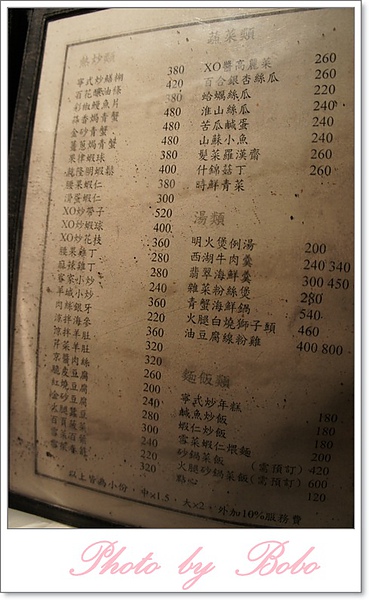 熱炒類
寧式炒鱔糊 380
百花釀油條 420
彩椒鰻魚片 380
蒜香焗青蟹 480
金砂青蟹 480
薑蔥焗青蟹 480
果律蝦球 380
龍隆明蝦鬆 400
腰果蝦仁 380
滑蛋蝦仁 300
XO炒帶子 520
XO炒蝦球 400
XO炒花枝 360
腰果雞丁 280
麻辣雞丁 280
客家小炒 240
羊城小炒 360
肉絲銀牙 220
涼拌海參 360
涼拌羊肚 320
芹菜羊肚 320
京醬肉絲 260
脆皮豆腐 200
紅燒豆腐 240
金砂豆腐 280
火腿蠶豆 300
百頁蔬菜 240
雪菜百葉 220
320
蔬菜類
XO醬高麗菜 260
百合銀杏絲瓜 260
蛤蠣絲瓜 220
淮山絲瓜 240
苦瓜鹹蛋 240
山蘇小魚 240
髮菜羅漢齋 260
什錦菇丁 260
時鮮青菜
湯類
明火煲例湯 200
西湖牛肉羹 240 340
翡翠海鮮羹 300 450
雜菜粉絲煲 280
青蟹海鮮鍋 540
火腿白燒獅子頭 460
油豆腐線粉雞 400 800
麵飯類
寧式炒年糕
鹹魚炒飯 180
蝦仁炒飯 180
雪菜蝦仁煨麵 180
砂鍋菜飯 200
火腿砂鍋菜飯 (需預訂) 420
點心 (需預訂) 600
120
以上皆為小份，中×1.5，大×2，外加10%服務費
Photo by Bobo